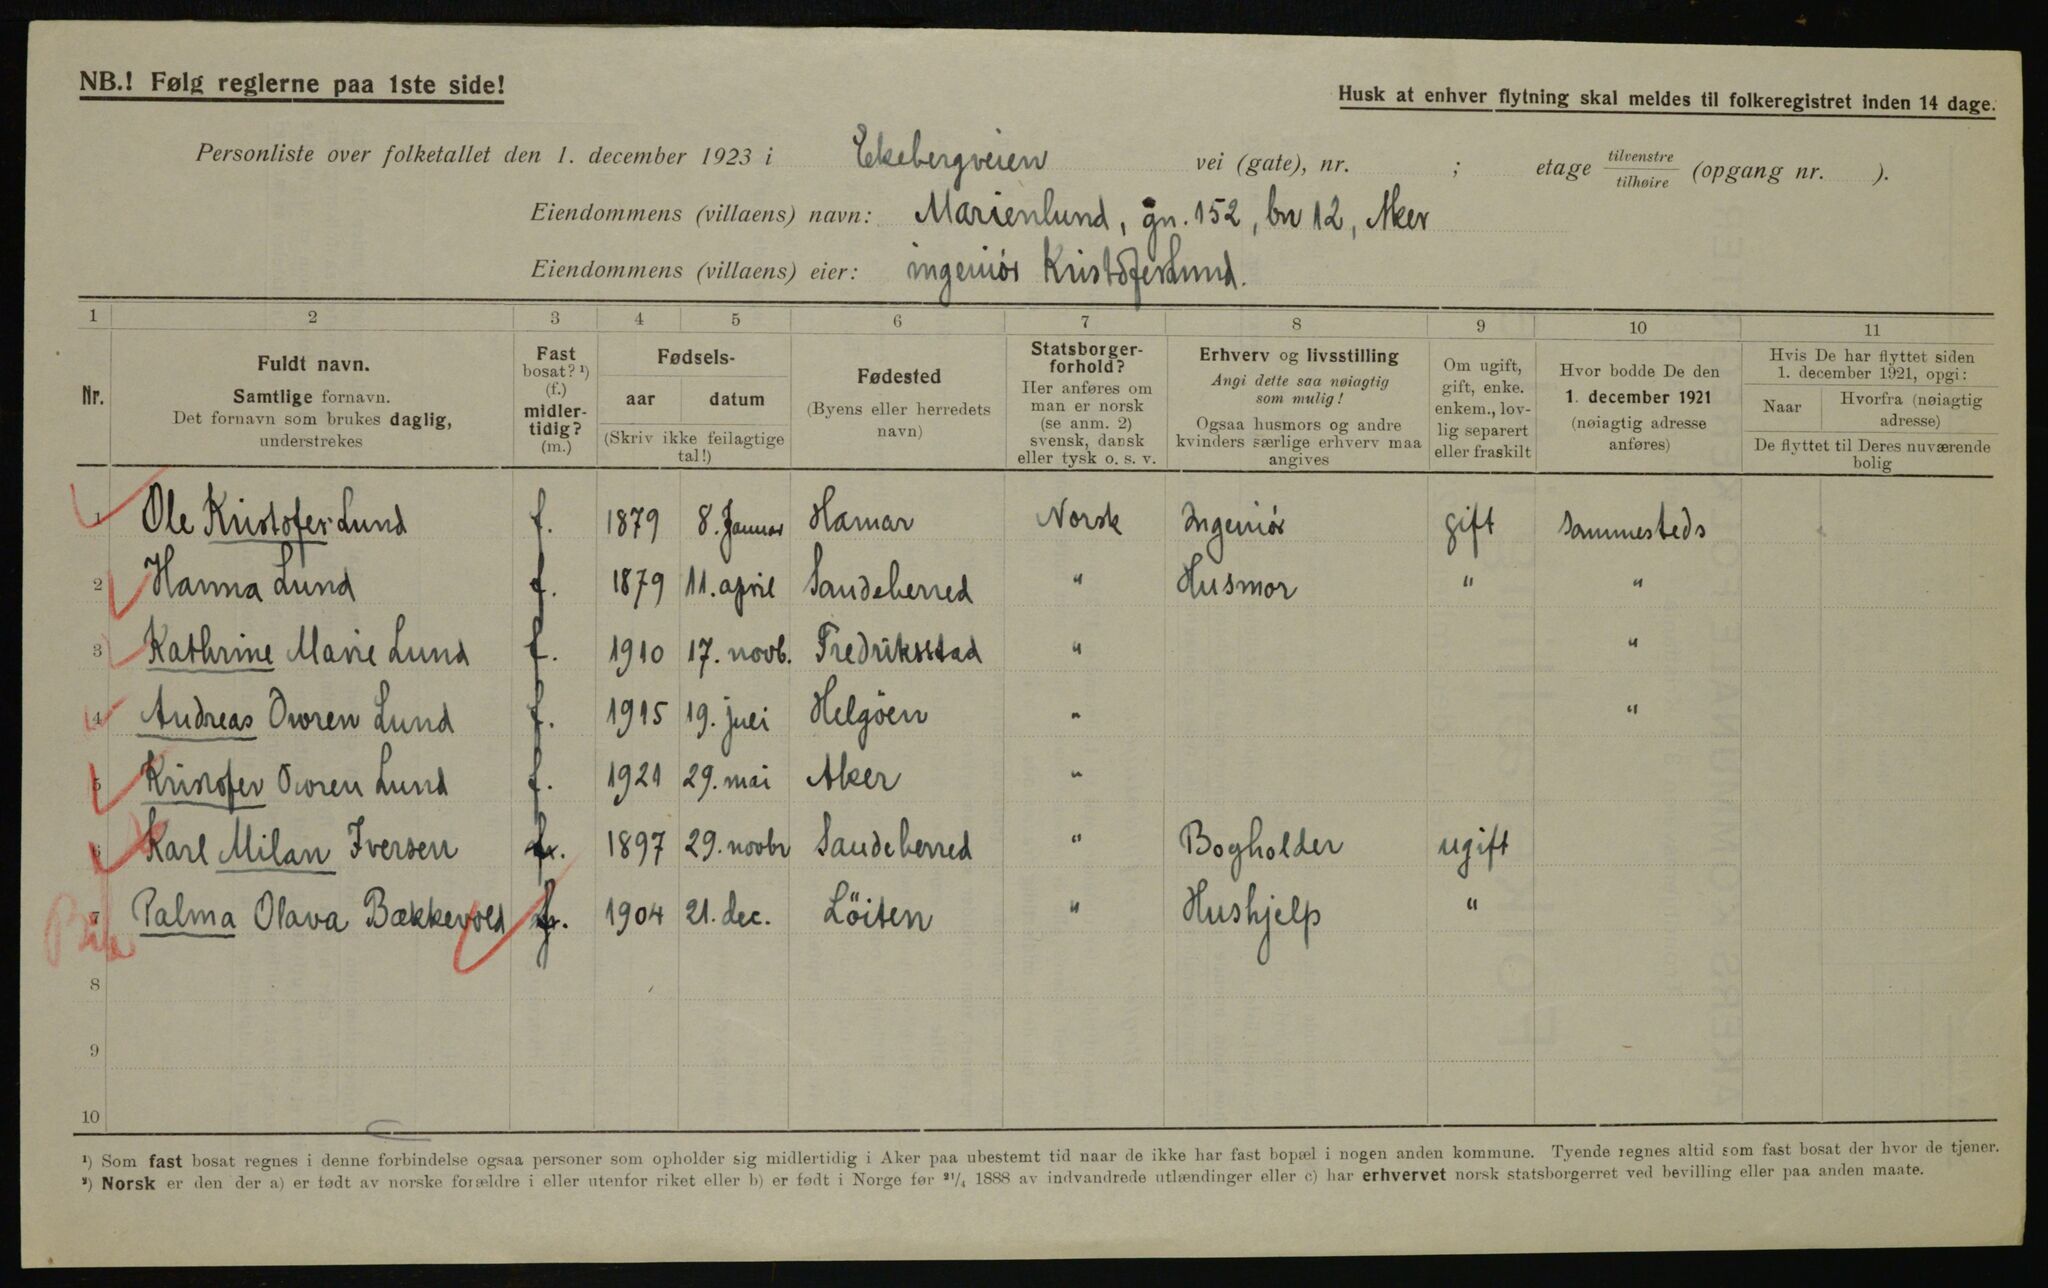 NB.! Følg reglerne paa 1ste side!
Husk at enhver flytning skal meldes til folkeregistret inden 14 dage.
Personliste over folketallet den 1. december 1923 i Ekebergveien vei (gate), nr. ; etage tilvenstre tilhøire (opgang nr. ).
Eiendommens (villaens) navn: Marienlund, gn. 152, bn 12, Aker
Eiendommens (villaens) eier: ingeniør Kristofer Lund.
1 2 3 4 5 6 7 8 9 10 11
Nr.
Fuldt navn.
Samtlige fornavn.
Det fornavn som brukes daglig,
understrekes
Fast
bosat? ¹)
(f.)
midler-
tidig?
(m.)
Fødsels-
aar datum
(Skriv ikke feilagtige
tal!)
Fødested
(Byens eller herredets
navn)
Statsborger-
forhold?
Her anføres om
man er norsk
(se anm. 2)
svensk, dansk
eller tysk o. s. v.
Erhverv og livsstilling
Angi dette saa nøiagtig
som mulig!
Ogsaa husmors og andre
kvinders særlige erhverv maa
angives
Om ugift,
gift, enke.
enkem., lov-
lig separert
eller fraskilt
Hvor bodde De den
1. december 1921
(nøiagtig adresse
anføres)
Hvis De har flyttet siden
1. december 1921, opgi:
Naar
Hvorfra (nøiagtig
adresse)
De flyttet til Deres nuværende
bolig
1 Ole Kristofer Lund f. 1879 8. Januar Hamar Norsk Ingeniør gift Sammesteds
2 Hanna Lund f. 1879 11. april Sandeherred " Husmor " "
3 Kathrine Marie Lund f. 1910 17. novb. Fredriksstad " "
4 Andreas Owren Lund f. 1915 19. juli Helgöen " "
5 Kristofer Owren Lund f. 1921 29. mai Aker "
6 Karl Milan Iversen f. 1897 29. novbr Sandeherred " Bogholder ugift
7 Palma Olava Bækkevold f. 1904 21. dec. Löiten " Hushjelp "
8
9
10
¹) Som fast bosat regnes i denne forbindelse ogsaa personer som opholder sig midlertidig i Aker paa ubestemt tid naar de ikke har fast bopæl i nogen anden kommune. Tyende regnes altid som fast bosat der hvor de tjener.
²) Norsk er den der a) er født av norske forældre i eller utenfor riket eller b) er født i Norge før ²¹/₄ 1888 av indvandrede utlændinger eller c) har erhvervet norsk statsborgerret ved bevilling eller paa anden maate.